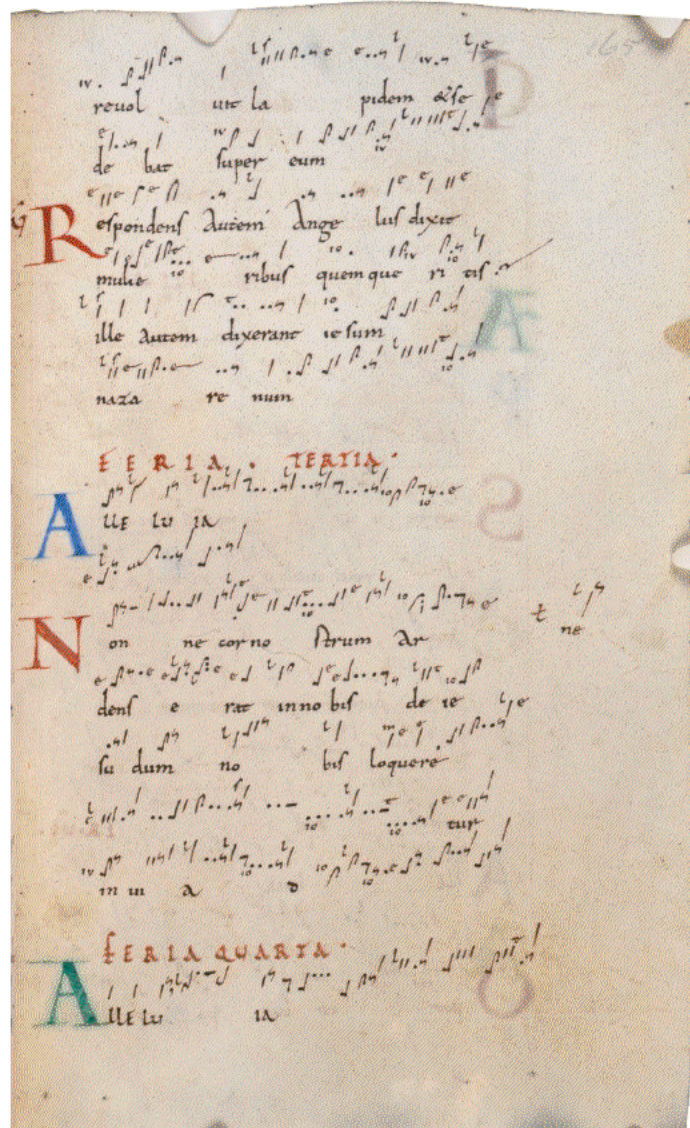 165
revol uit la pidem &se
de bat super eum
Respondens Autem Ange lus dixit
mulie ribus quem que ri tis
ille autem dixerant iesum
naza re num
FERIA TERTIA.
ALLE LU IA
Non ne cor no strum Ar ne
dens e rat in no bis de ie
su dum no bis loquere
tur
in ui a
FERIA QUARTA.
ALLE LU IA